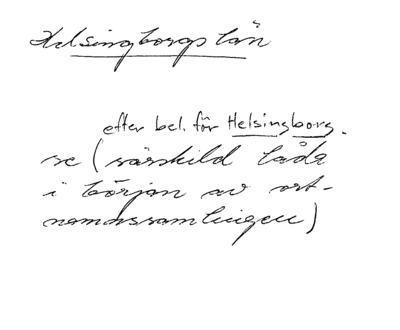 Helsingborgs län
efter bel. för Helsingborg.
se (särskild låda
i början av ort-
namnssamlingen)